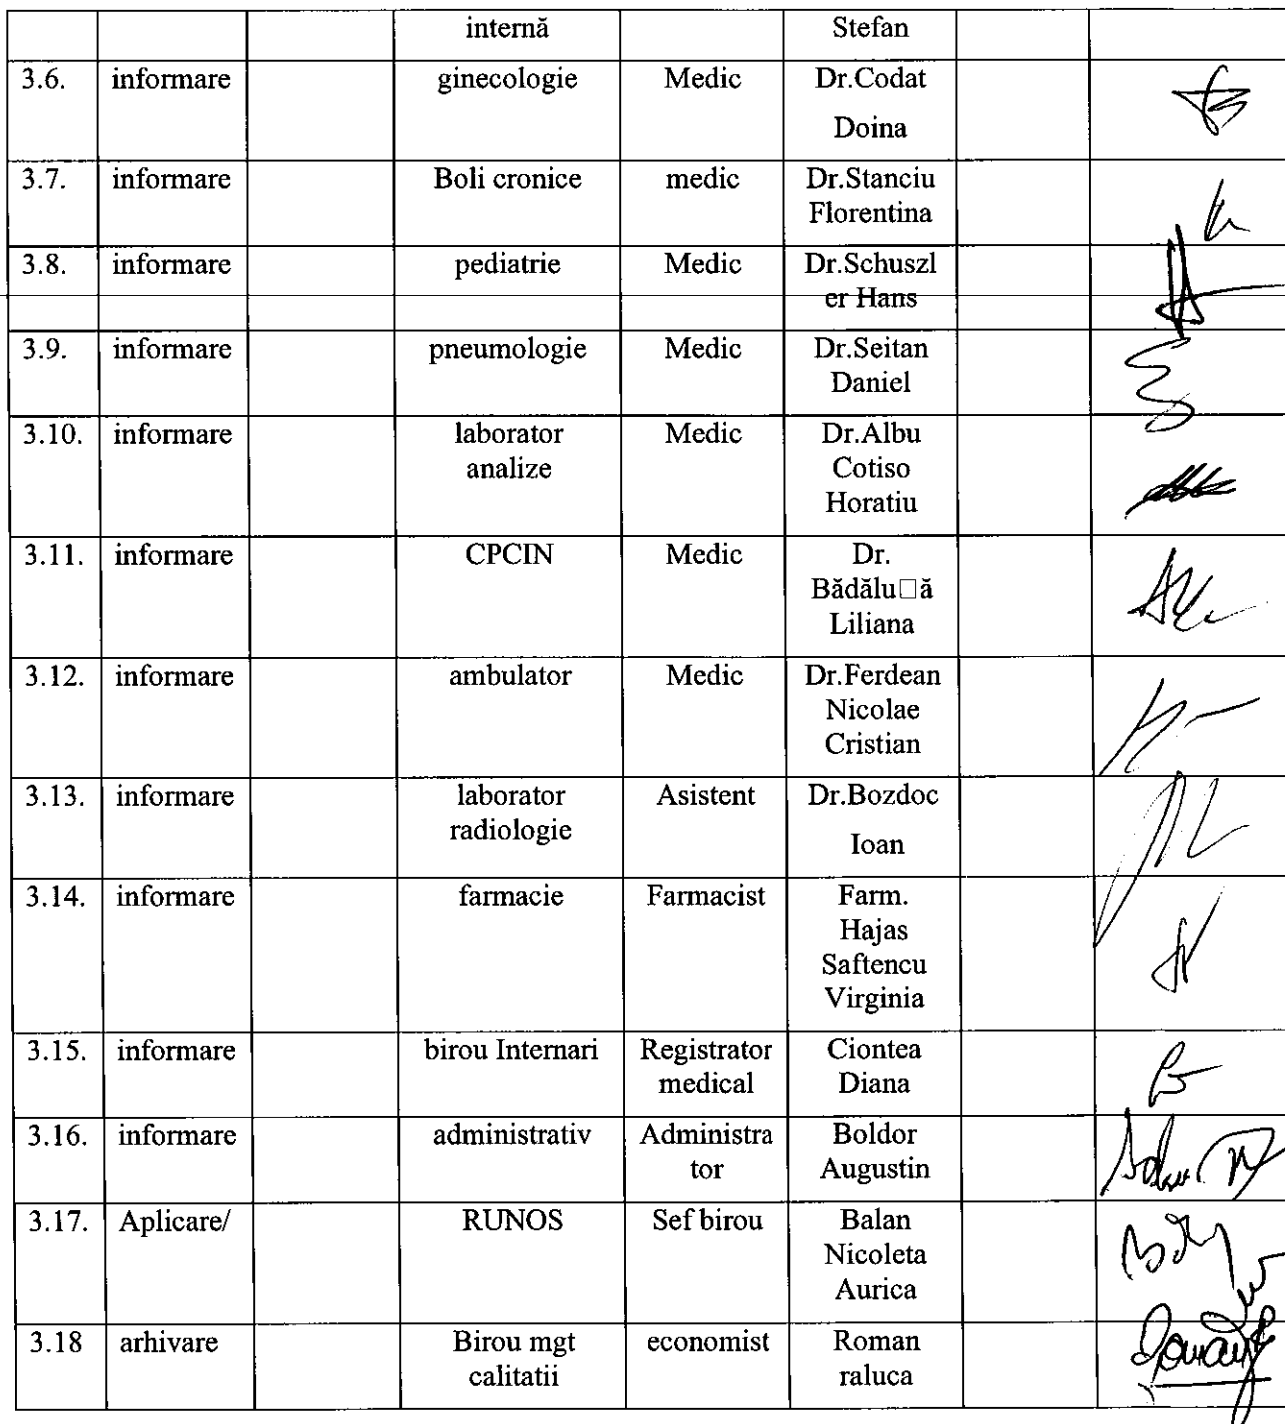 internă Stefan
3.6. informare ginecologie Medic Dr.Codat
Doina
3.7. informare Boli cronice medic Dr.Stanciu
Florentina
3.8. informare pediatrie Medic Dr.Schuszl
er Hans
3.9. informare pneumologie Medic Dr.Seitan
Daniel
3.10. informare laborator Medic Dr.Albu
analize Cotiso
Horatiu
3.11. informare CPCIN Medic Dr.
Bădălu□ă
Liliana
3.12. informare ambulator Medic Dr.Ferdean
Nicolae
Cristian
3.13. informare laborator Asistent Dr.Bozdoc
radiologie Ioan
3.14. informare farmacie Farmacist Farm.
Hajas
Saftencu
Virginia
3.15. informare birou Internari Registrator Ciontea
medical Diana
3.16. informare administrativ Administra Boldor
tor Augustin
3.17. Aplicare/ RUNOS Sef birou Balan
Nicoleta
Aurica
3.18 arhivare Birou mgt economist Roman
calitatii raluca